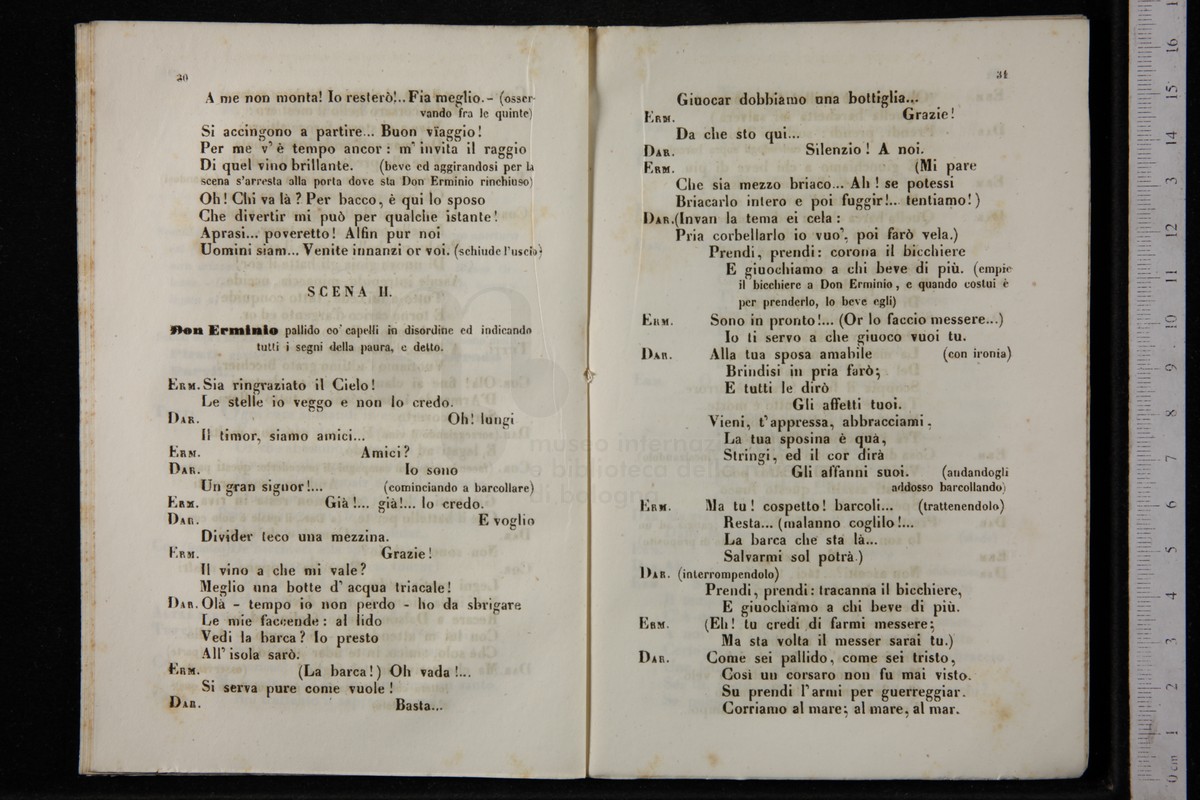 30
A me non monta! Io resterò!..Fia meglio.- (osser-
vando fra le quinte)
Si accingono a partire... Buon vïaggio!
Per me v'è tempo ancor: m'invita il raggio
Di quel vino brillante. (beve ed aggirandosi per la
scena s'arresta alla porta dove sta Don Erminio rinchiuso)
Oh! Chi va là? Per bacco, è qui lo sposo
Che divertir mi può per qualche istante!
Aprasi... poveretto! Alfin pur noi
Uomini siam... Venite innanzi or voi. (schiude l'uscio)
SCENA II.
Don Erminio pallido co' capelli in disordine ed indicando
tutti i segni della paura, e detto.
ERM. Sia ringraziato il Cielo!
Le stelle io veggo e non lo credo.
DAR. Oh! lungi
Il timor, siamo amici...
ERM. Amici?
DAR. Io sono
Un gran signor!... (cominciando a barcollare)
ERM. Già!... già!... lo credo.
DAR. E voglio
Divider teco una mezzina.
ERM. Grazie!
Il vino a che mi vale?
Meglio una botte d'acqua triacale!
DAR. Olà - tempo io non perdo - ho da sbrigare
Le mie faccende: al lido
Vedi la barca? Io presto
All'isola sarò.
ERM. (La barca!) Oh vada!...
Si serva pure come vuole!
DAR. Basta...
31
Giuocar dobbiamo una bottiglia...
ERM. Grazie!
Da che sto qui...
DAR. Silenzio! A noi.
ERM. (Mi pare
Che sia mezzo briaco... Ah! se potessi
Briacarlo intero e poi fuggir!... tentiamo!)
DAR.(Invan la tema ei cela:
Pria corbellarlo io vuo', poi farò vela.)
Prendi, prendi: corona il bicchiere
E giuochiamo a chi beve di più. (empie
il bicchiere a Don Erminio, e quando costui è
per prenderlo, lo beve egli)
ERM. Sono in pronto!... (Or lo faccio messere...)
Io ti servo a che giuoco vuoi tu.
DAR. Alla tua sposa amabile (con ironia)
Brindisi in pria farò;
E tutti le dirò
Gli affetti tuoi.
Vieni, t'appressa, abbracciami,
La tua sposina è quà,
Stringi, ed il cor dirà
Gli affanni suoi. (andandogli
addosso barcollando)
ERM. Ma tu! cospetto! barcoli... (trattenendolo)
Resta... (malanno coglilo!...
La barca che sta là...
Salvarmi sol potrà.)
DAR. (interrompendolo)
Prendi, prendi: tracanna il bicchiere,
E giuochiamo a chi beve di più.
ERM. (Eh! tu credi di farmi messere;
Ma sta volta il messer sarai tu.)
DAR. Come sei pallido, come sei tristo,
Così un corsaro non fu mai visto.
Su prendi l'armi per guerreggiar.
Corriamo al mare; al mare, al mar.
museo internazi
a biblioteca della mus
di bologna
0 cm 1 2 3 4 5 6 7 8 9 10 11 12 3 14 15 16